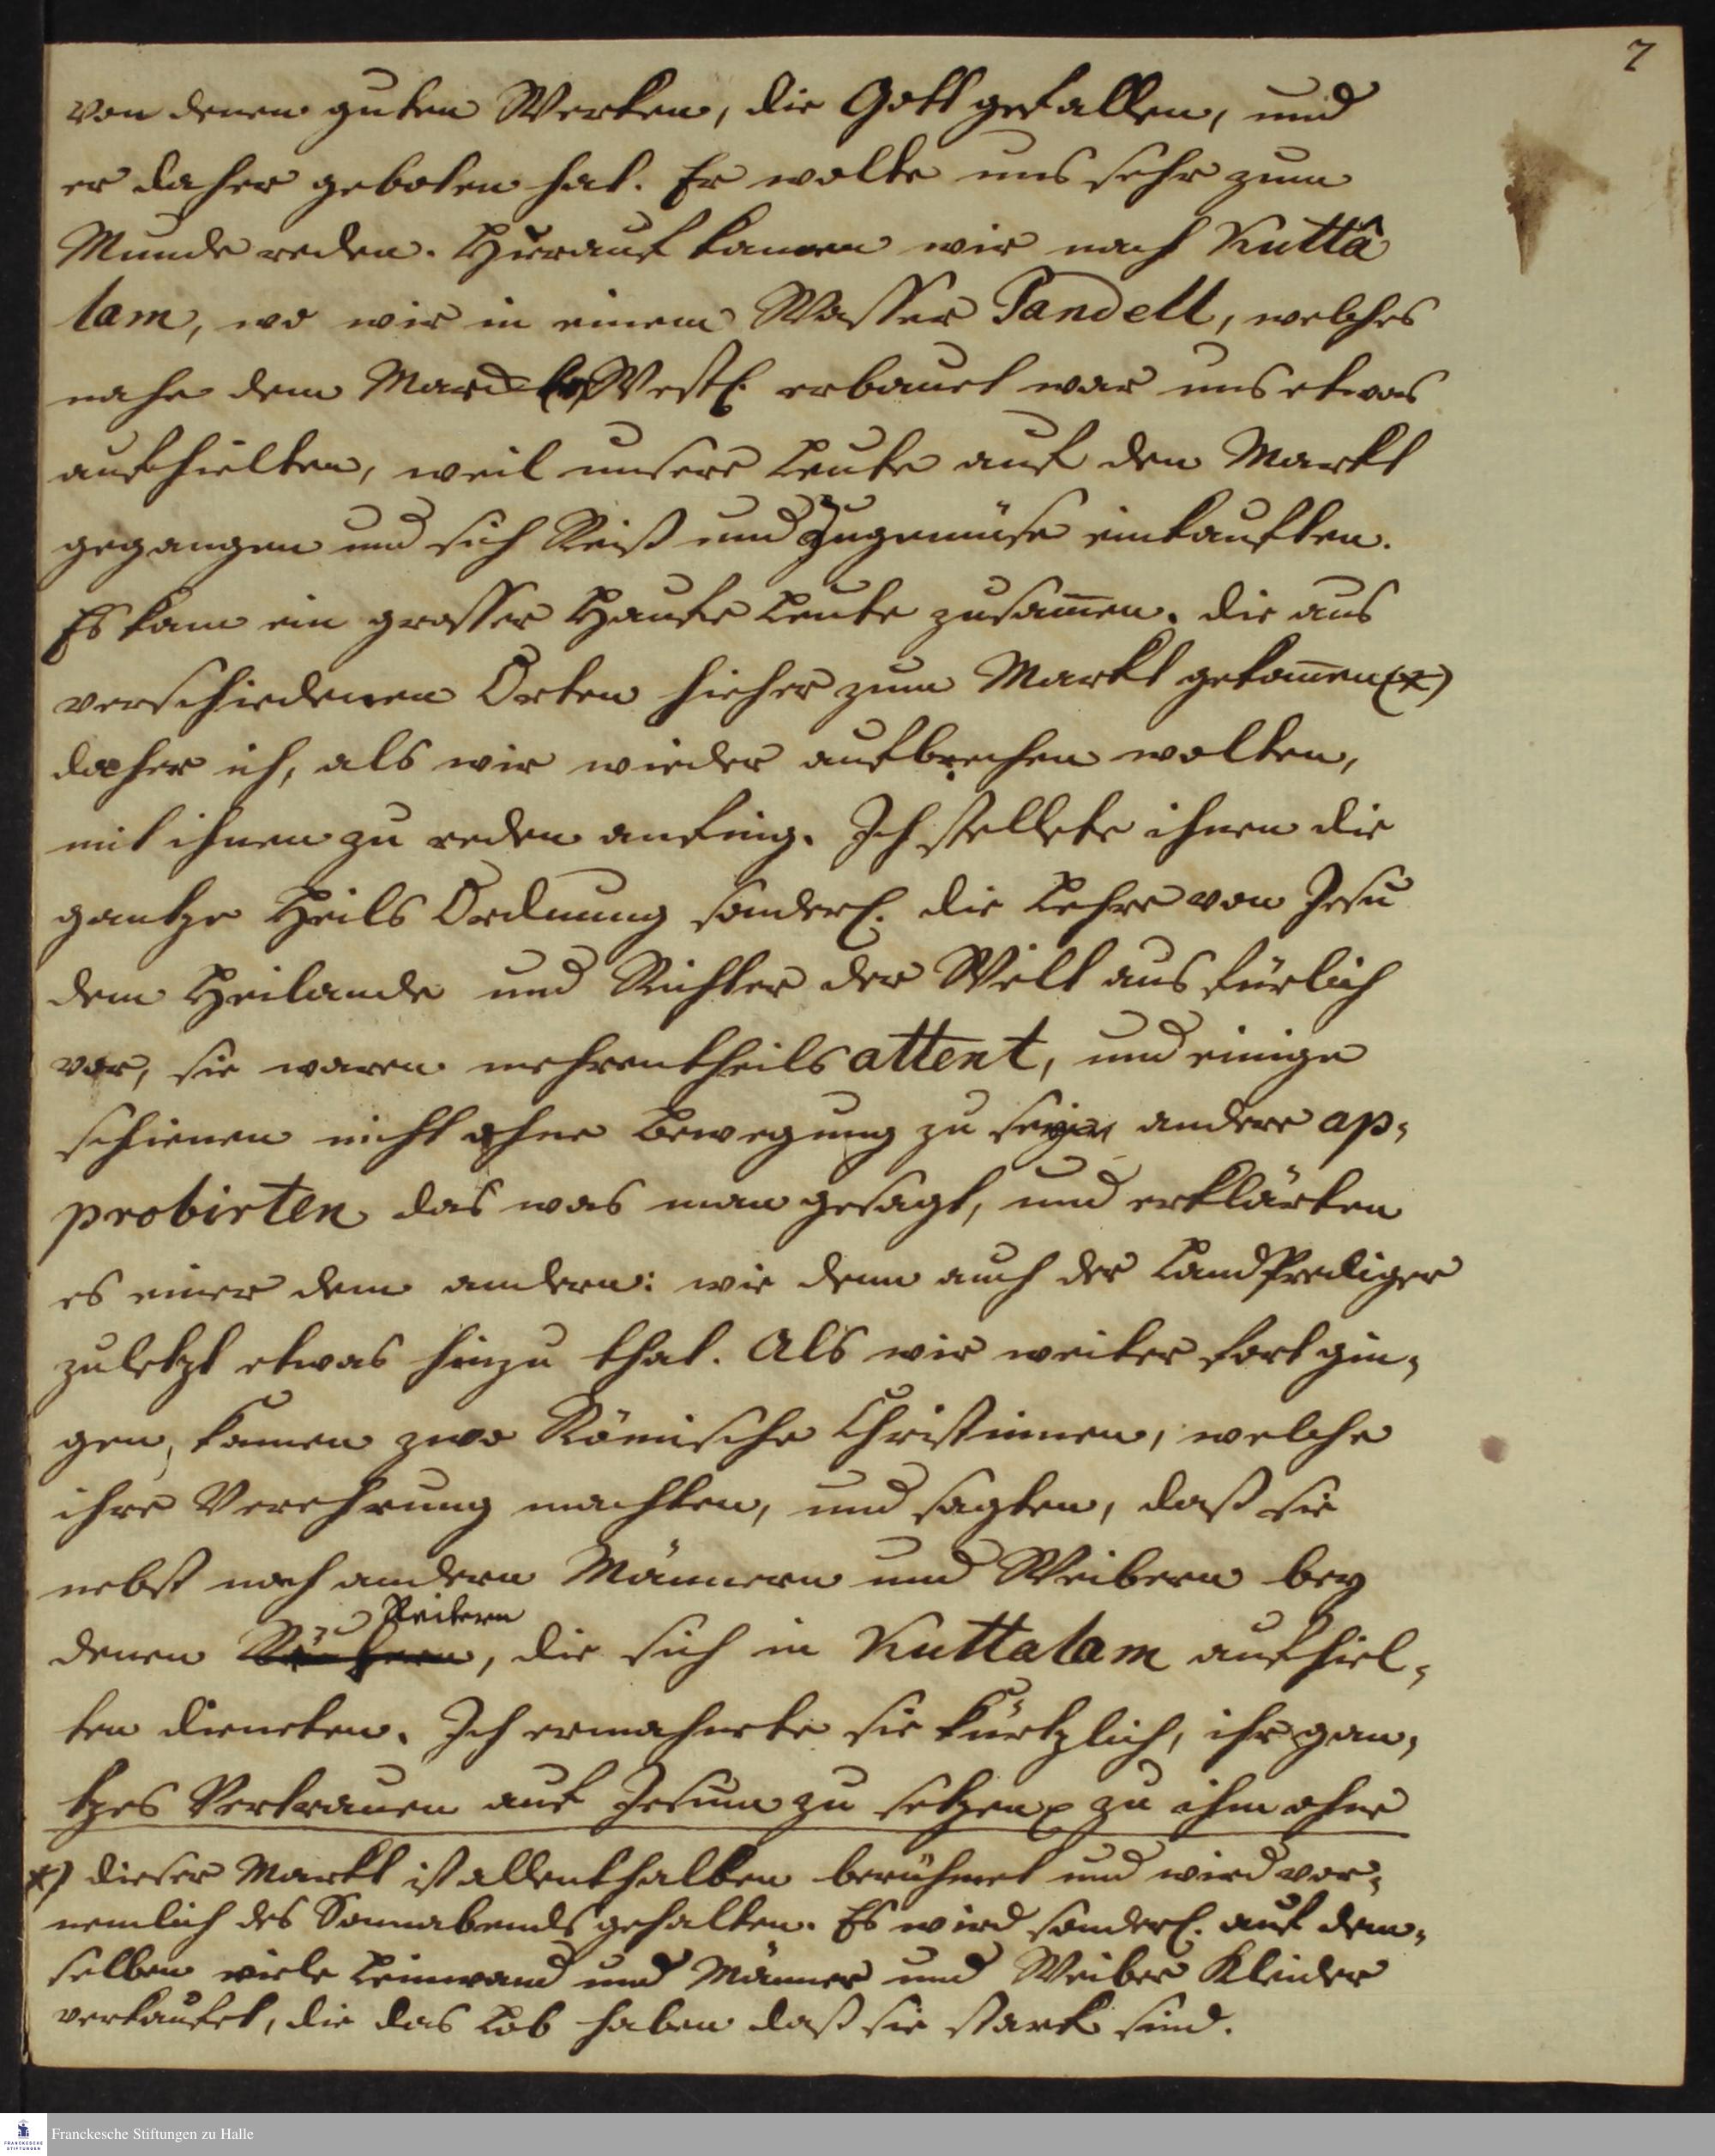 7
von denen guten Werken, die Gott gefallen, und
er daher geboten hat. Er wolte uns sehr zum
Munde reden. Hierauf kamen wir nach Kuttâ
lam, wo wir in einem Wasser Pandell, welches
nahe dem Mark Westl. erbauet war uns etwas
aufhielten, weil unsere Leute auf den Markt
gegangen und sich Reiß und Zugemüse einkauften.
Es kam ein grosser Haufe Leute zusam̄en. die aus
verschiedenen Orten hieher zum Markt gekom̄en (*)
daher ich, als wir wieder aufbrechen wolten,
mit ihnen zu reden anfing. Ich stellete ihnen die
gantze Heils Ordnung sonderl. die Lehre von Jesu
dem Heilande und Richter der Welt ausfürlich
vor, sie waren mehrentheils attent, und einige
schienen nicht ohne Bewegung zu seyn andere ap-
probirten das was man gesagt, und erklärten
es einer dem andern: wie denn auch der Landprediger
zuletzt etwas hinzu that. Als wir weiter fort gin-
gen, kamen zwo Römische Christinnen, welche
ihre Verehrung machten, und sagten, daß sie
nebst noch andern Männern und Weibern bey
Reitern
denen, die sich in Kuttalam aufhiel-
ten dieneten. Ich ermahnete sie kürtzlich, ihr gan-
tzes Vertrauen auf Jesum zu setzen zu ihm ohne
*) dieser Markt ist allenthalben berühmet und wird vor-
nemlich des Sonnabends gehalten. Es wird sonderl. auf dem-
selben viele Leinwand und Männer und Weiber Kleider
verkaufet, die das Lob haben daß sie stark sind.
FRANCKESCHE STIFTUNGEN
Franckesche Stiftungen zu Halle